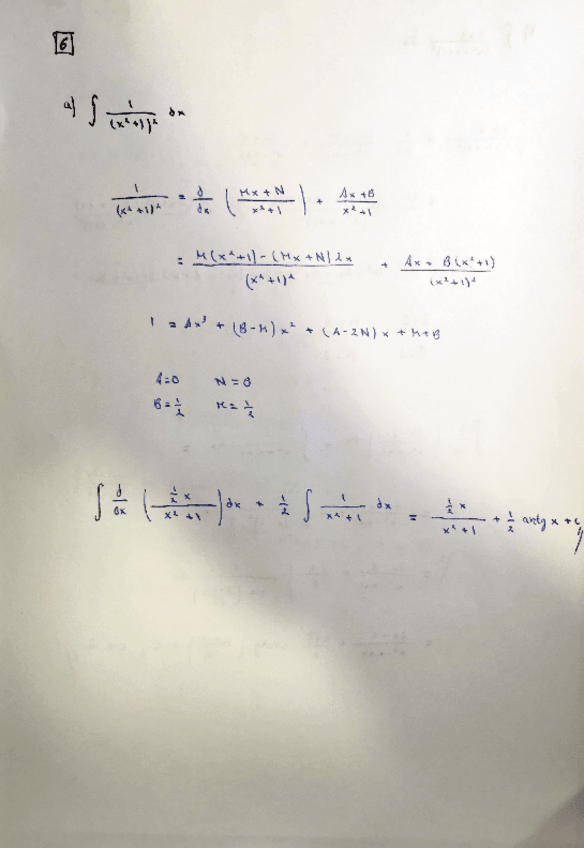 6
a) ∫ 1/(x²+1)² dx
1/(x²+1)² = d/dx ( (Mx+N)/(x²+1) ) + (Ax+B)/(x²+1)
= (M(x²+1)-(Mx+N)2x)/(x²+1)² + (Ax+B(x²+1))/(x²+1)²
1 = Ax³ + (B-M)x² + (A-2N)x + M+B
A=0 N=0
B=1/2 M=1/2
∫ d/dx ( (1/2 x)/(x²+1) ) dx + 1/2 ∫ 1/(x²+1) dx = (1/2 x)/(x²+1) + 1/2 arctg x + c //